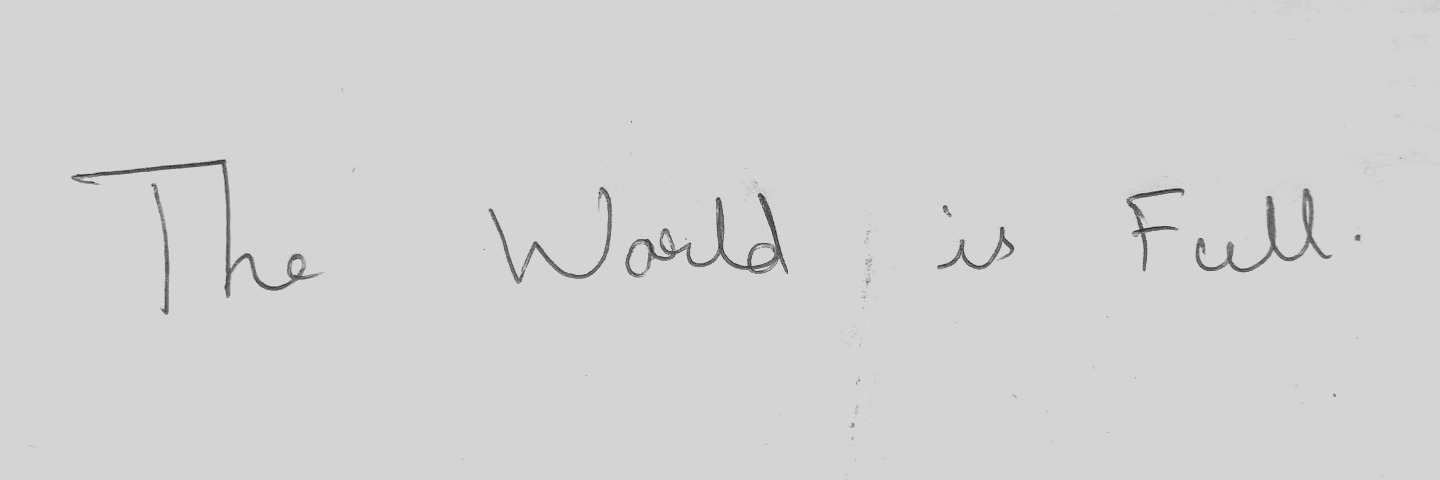 The World is Full.